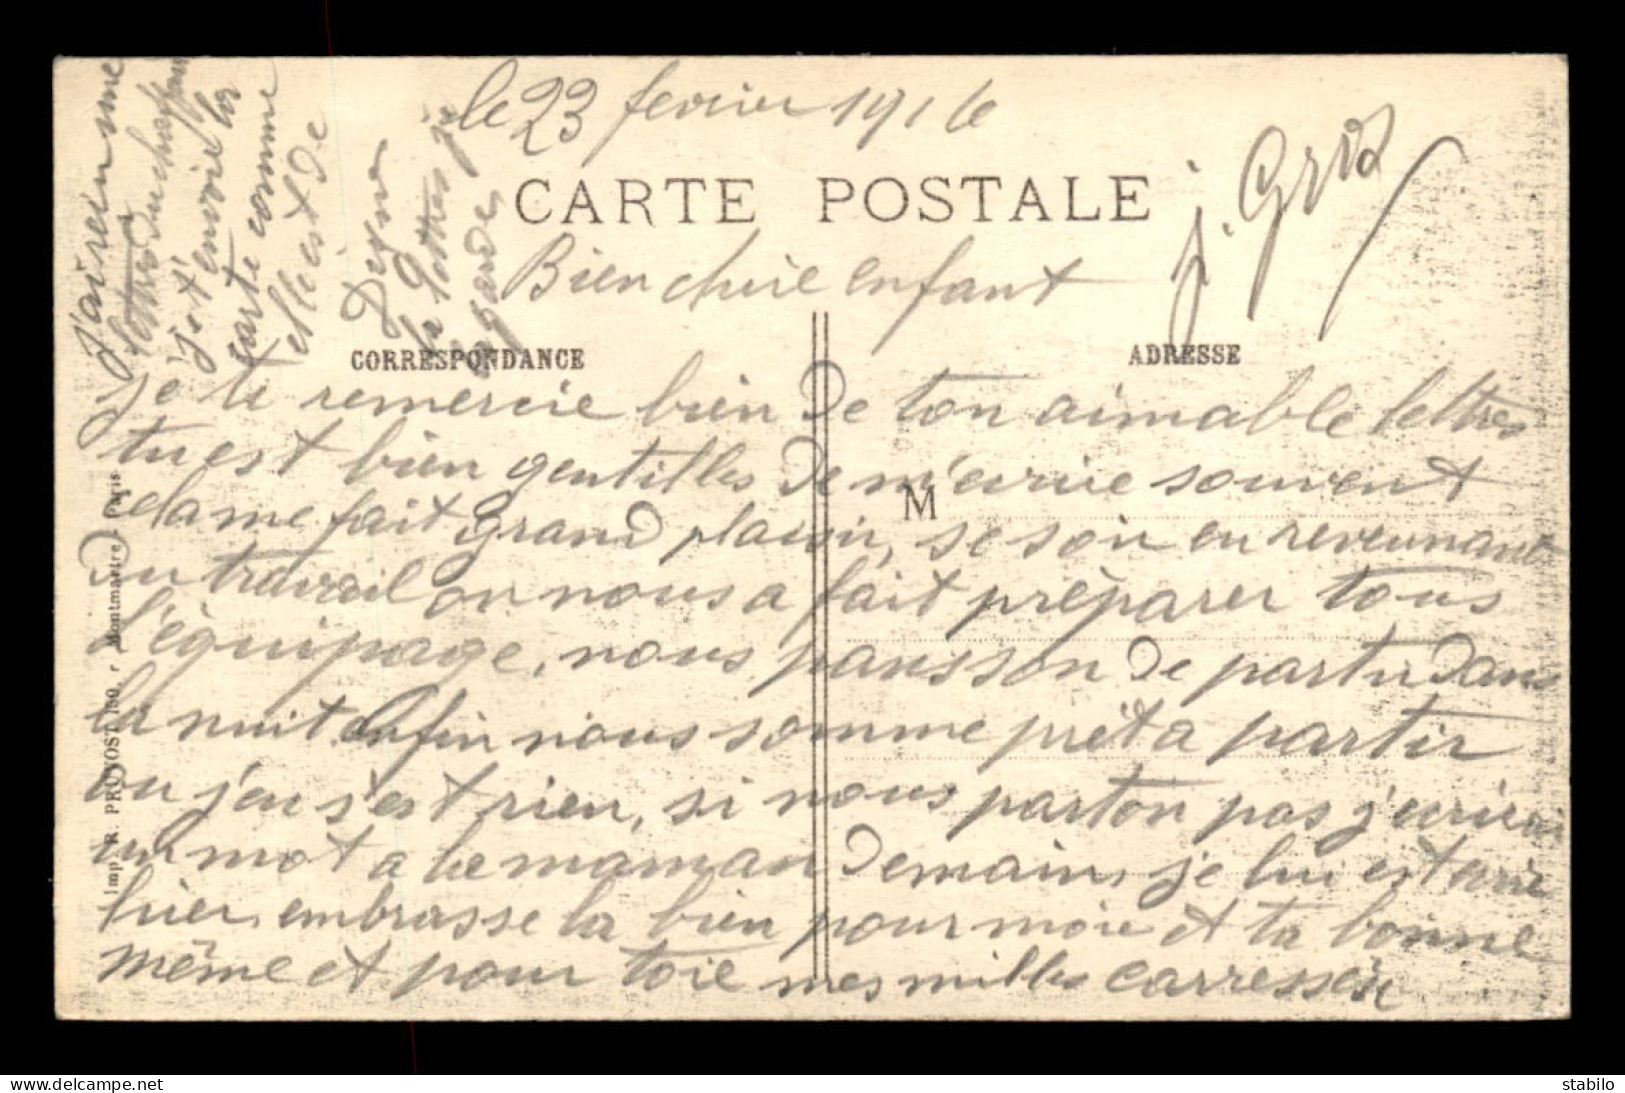 le 23 fevrier 1916
J. Gros
CARTE POSTALE
Bien chère enfant
CORRESPONDANCE
ADRESSE
je te remercie bien de ton aimable lettres
tu est bien gentilles de m'ecrire souvent
M
cela me fait grand plaisir, se soir en revennant
du travail on nous a fait préparer tous
l'équipage, nous pansson de partir dans
la nuit enfin nous somme prêt a partir
ou j'en s'est rien, si nous parton pas j'ecrirai
un mot a ta maman demain, je lui est ecrie
hier, embrasse la bien pour moie et ta bonne
même et pour toie mes milles carresses
J'ai rein sme
carte comme
elle est de
la lettres je
Imp. R. PRUVOST, 190, r. Montmartre - Paris
stabilo
www.delcampe.net